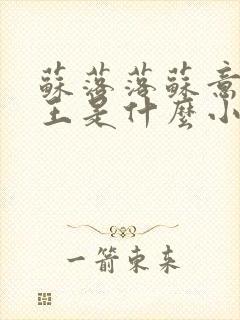 蘇落落蘇意
主是什麼小
一箭東來